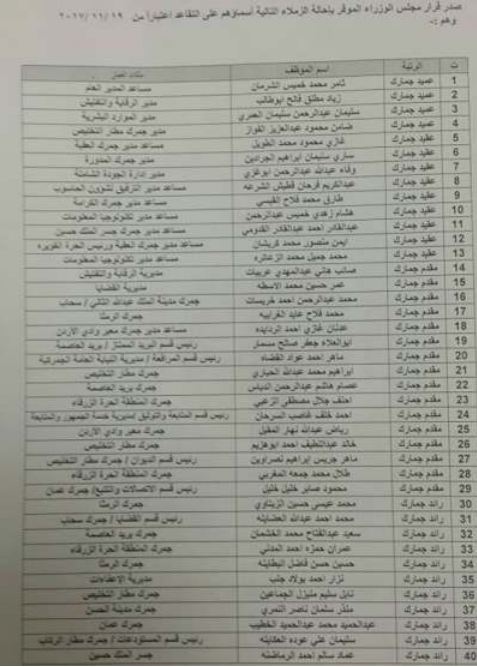 صدر قرار مجلس الوزراء الموقر بإحالة الزملاء التالية أسماؤهم على التقاعد اعتباراً من ٢٠١٧/١١/١٩
وهم :-
ت الرتبة اسم الموظف مكان العمل
1 عميد جمارك ثامر محمد خميس الشرمان مساعد المدير العام
2 عميد جمارك زياد مطلق فالح ابوطالب مدير الرقابة والتفتيش
3 عميد جمارك سليمان عبدالرحمن سليمان العمري مدير الموارد البشرية
4 عميد جمارك ضامن محمود عبدالعزيز الفواز مدير جمرك مطار التخليص
5 عقيد جمارك غازي محمود محمد الطويل مساعد مدير جمرك العقبة
6 عقيد جمارك ساري سليمان ابراهيم الجرادين مدير جمرك المدورة
7 عقيد جمارك وفاء عبدالله عبدالرحمن ابوغزي مدير ادارة الجودة الشاملة
8 عقيد جمارك عبدالكريم فرحان قطيش الشرعه مساعد مدير الترفيق لشؤون الحاسوب
9 عقيد جمارك طارق محمد فلاح القيسي مساعد مدير جمرك الكرامة
10 عقيد جمارك هشام زهدي خميس عبدالرحمن مساعد مدير تكنولوجيا المعلومات
11 عقيد جمارك عبدالقادر احمد عبدالقادر القدومي مساعد مدير جمرك جسر الملك حسين
12 عقيد جمارك ايمن منصور محمد كريشان مساعد مدير جمرك العقبة ورئيس الحرة
13 عقيد جمارك محمد جميل محمد الزعاتره مساعد مدير تكنولوجيا المعلومات
14 مقدم جمارك صائب هاني عبدالمهدي عربيات مديرية الرقابة والتفتيش
15 مقدم جمارك عمر حسين محمد مديرية القضايا
16 مقدم جمارك محمد عبدالرحمن احمد خريسات جمرك مدينة الملك عبدالله الثاني / سحاب
17 مقدم جمارك محمد فلاح عايد الغرايبه جمرك الرمثا
18 مقدم جمارك عدنان غازي احمد الردايده مساعد مدير جمرك معبر وادي الاردن
19 مقدم جمارك ابوالعلاء جعفر صالح مسمار رئيس قسم البريد الممتاز / بريد العاصمة
20 مقدم جمارك ماهر احمد عواد القضاه رئيس قسم المرافعة / مديرية النيابة العامة الجمركية
21 مقدم جمارك ابراهيم محمد عبدالله الحياري جمرك مطار التخليص
22 مقدم جمارك عصام هاشم عبدالرحمن الدباس جمرك بريد العاصمة
23 مقدم جمارك احنف جلال مصطفى الزعبي جمرك المنطقة الحرة الزرقاء
24 مقدم جمارك احمد خلف غاصب السرحان رئيس قسم المتابعة والتوثيق / مديرية خدمة الجمهور والمتابعة
25 مقدم جمارك رياض عبدالله نهار المقبل جمرك معبر وادي الاردن
26 مقدم جمارك خالد عبداللطيف احمد ابوهزيم جمرك مطار التخليص
27 مقدم جمارك ماهر جريس ابراهيم نصراوين رئيس قسم الديوان / جمرك مطار التخليص
28 مقدم جمارك طلال محمد جمعه المغربي جمرك المنطقة الحرة الزرقاء
29 مقدم جمارك محمود صابر خليل خليل رئيس قسم الاتصالات والتتبع / جمرك عمان
30 رائد جمارك محمد عيسى حسين الزيناوي جمرك الرمثا
31 رائد جمارك محمد احمد عبدالله العضايله رئيس قسم القضايا / جمرك سحاب
32 رائد جمارك سعيد عبدالفتاح محمد الخشمان جمرك بريد العاصمة
33 رائد جمارك عمران حمزه احمد المدني جمرك المنطقة الحرة الزرقاء
34 رائد جمارك حسين حسن فاضل البطاينه جمرك الرمثا
35 رائد جمارك نزار احمد بولاد جنب مديرية الاعفاءات
36 رائد جمارك نايل سليم منيزل الجماعين جمرك مطار التخليص
37 رائد جمارك منذر سلمان ناصر النمري جمرك مدينة الحسن
38 رائد جمارك عبدالحميد محمد عبدالحميد الخطيب جمرك عمان
39 رائد جمارك سليمان علي عوده العكايله رئيس قسم المستودعات / جمرك مطار الركاب
40 رائد جمارك عماد سالم احمد الرماضنه جسر الملك حسين